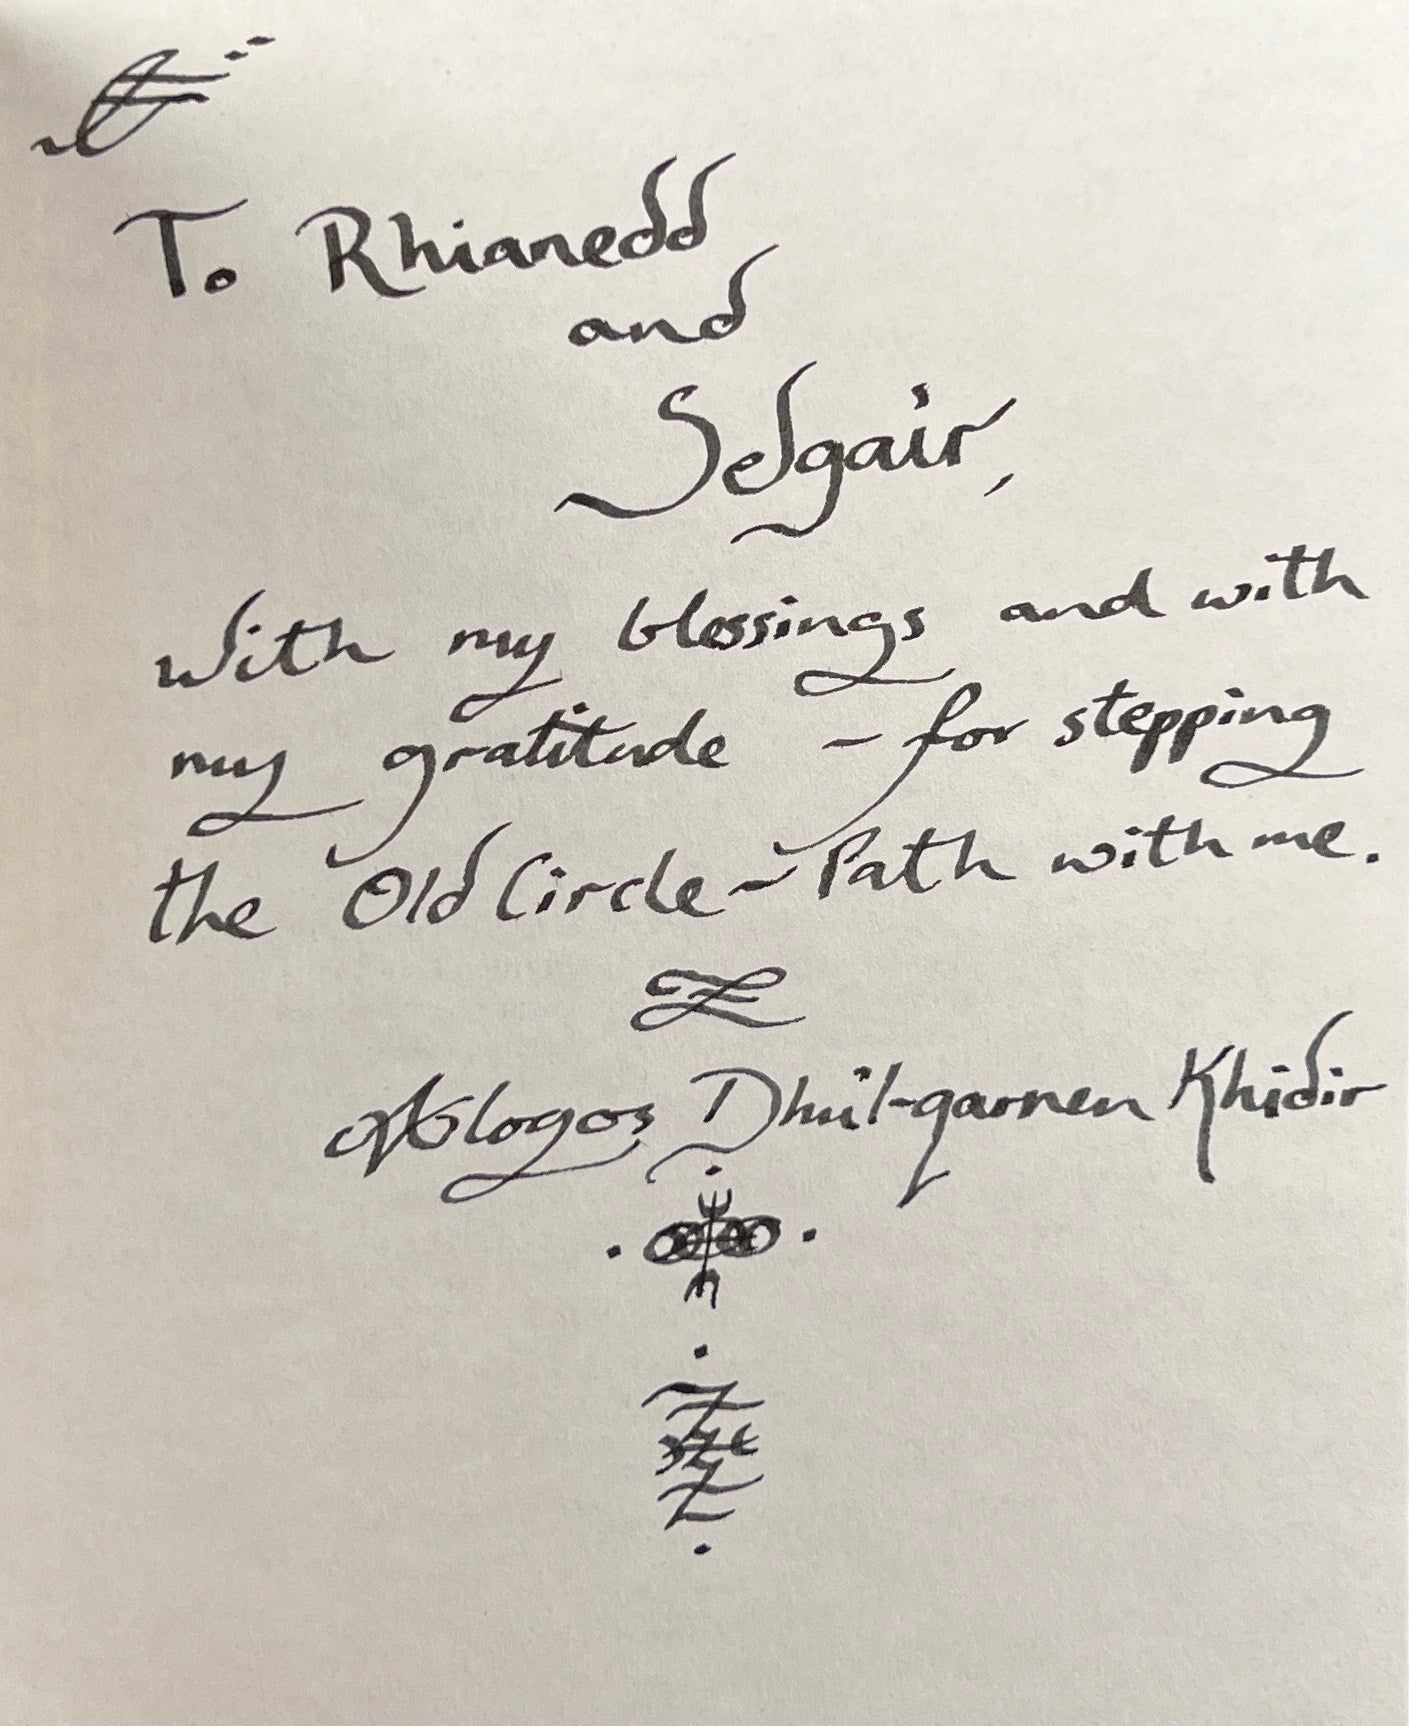 To Rhianedd
and
Sedgair,
With my blessings and with
my gratitude ~ for stepping
the Old Circle ~ Path with me.
Dhul-qarnen Khidir